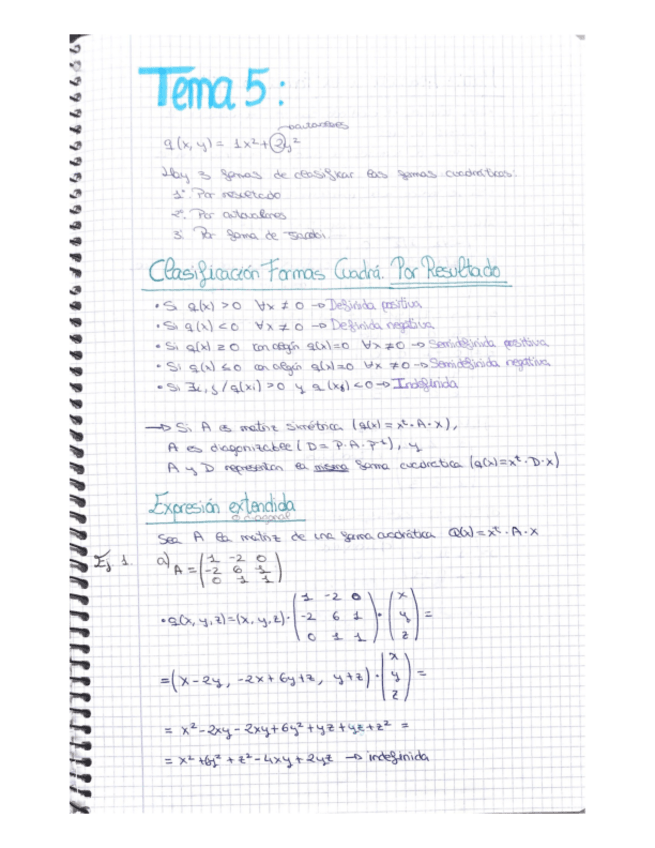 Tema 5:
autovalores
q(x,y) = 1x² + 2y²
Hay 3 formas de clasificar las formas cuadráticas:
1º. Por resultado
2º. Por autovalores
3. Por forma de Jacobi.
Clasificación Formas Cuadrá. Por Resultado
• Si q(x) > 0 ∀x ≠ 0 → Definida positiva
• Si q(x) < 0 ∀x ≠ 0 → Definida negativa
• Si q(x) ≥ 0 con algún q(x)=0 ∀x ≠ 0 → Semidefinida positiva
• Si q(x) ≤ 0 con algún q(x)=0 ∀x ≠ 0 → Semidefinida negativa
• Si ∃i,j / q(xi) > 0 y q(xj) < 0 → Indefinida
→ Si A es matriz simétrica (q(x) = xᵗ·A·x),
A es diagonizable (D = P·A·Pᵗ), y
A y D representan la misma forma cuadrática (q(x)=xᵗ·D·x)
Expresión extendida
o diagonal
Sea A la matriz de una forma cuadrática Q(x) = xᵗ·A·x
Ej 1. a) A = (1 -2 0
-2 6 1
0 1 1)
• q(x,y,z) = (x,y,z) · (1 -2 0
-2 6 1
0 1 1) · (x
y
z) =
= (x-2y, -2x+6y+z, y+z) · (x
y
z) =
= x² - 2xy - 2xy + 6y² + yz + yz + z² =
= x² + 6y² + z² - 4xy + 2yz → indefinida